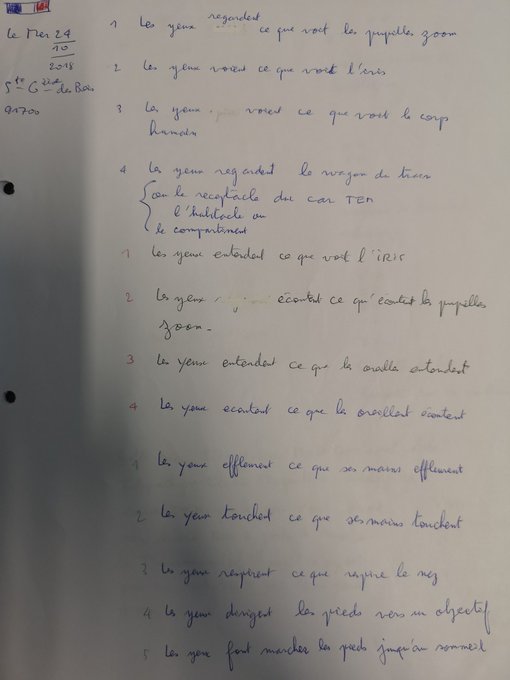 le Mer 24
10
2018
Ste Gzzve des Bois
91700
1 Les yeux regardent ce que voit les pupilles zoom
2 Les yeux voient ce que voit l'iris
3 Les yeux voient ce que voit le corp
humain
4 Les yeux regardent le wagon du train
ou le receptacle du car TEM
l'habitacle ou
le compartiment
1 Les yeux entendent ce que voit l'iRis
2 Les yeux écoutent ce qu'écoutent les pupilles
zoom.
3 Les yeux entendent ce que les oreilles entendent
4 Les yeux ecoutent ce que les oreillent écoutent
1 Les yeux effleurent ce que ses mains effleurent
2 Les yeux touchent ce que ses mains touchent
3 Les yeux respirent ce que respire le nez
4 Les yeux dirigent les pieds vers un objectif
5 Les yeux font marcher les pieds jusqu'au sommeil